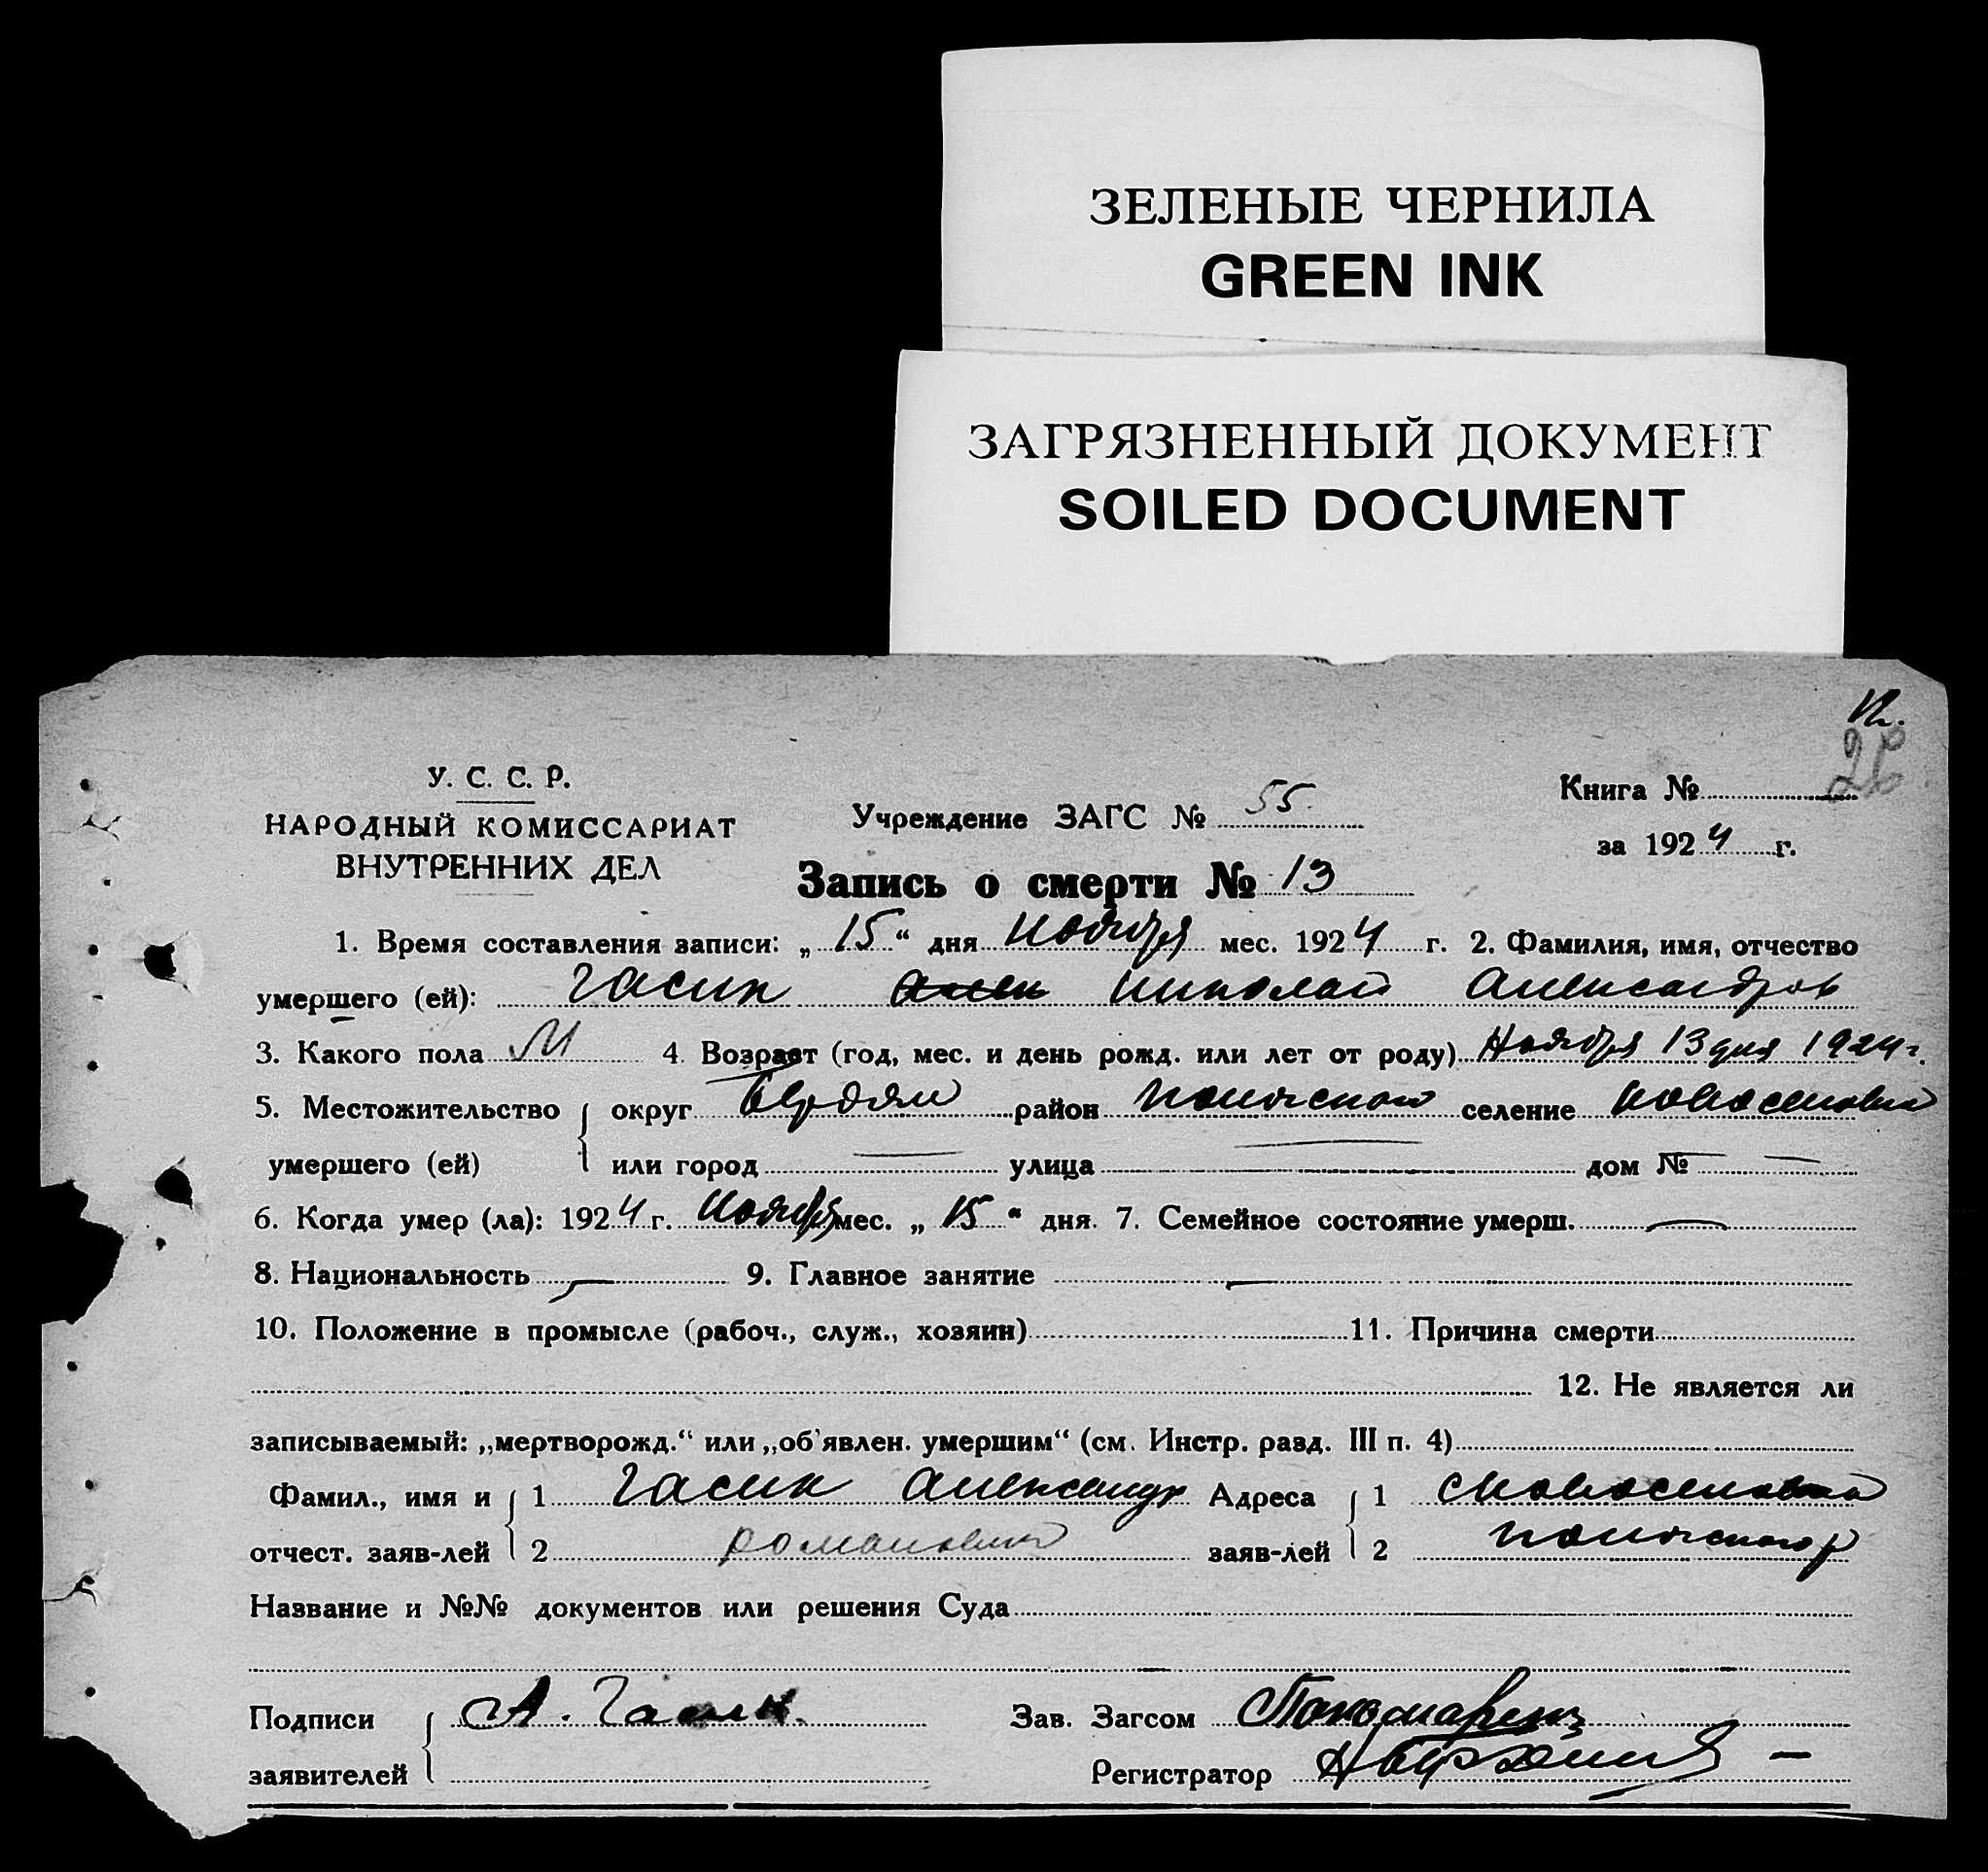 ЗЕЛЕНЫЕ ЧЕРНИЛА
GREEN INK
ЗАГРЯЗНЕННЫЙ ДОКУМЕНТ
SOILED DOCUMENT
У. С. С. Р.
НАРОДНЫЙ КОМИССАРИАТ
ВНУТРЕННИХ ДЕЛ
Учреждение ЗАГС № 55
Книга №
за 1924 г.
Запись о смерти № 13
1. Время составления записи: „15“ дня Ноября мес. 1924 г. 2. Фамилия, имя, отчество
умершего (ей): Гасик Николай Александров
3. Какого пола М 4. Возраст (год, мес. и день рожд. или лет от роду) Ноября 13 дня 1924 г.
5. Местожительство округ Бердян район селение
умершего (ей) или город — улица — дом № —
6. Когда умер (ла): 1924 г. Ноября мес. „15“ дня. 7. Семейное состояние умерш. —
8. Национальность — 9. Главное занятие —
10. Положение в промысле (рабоч., служ., хозяин) 11. Причина смерти
12. Не является ли
записываемый: „мертворожд.“ или „об'явлен. умершим“ (см. Инстр. разд. III п. 4)
Фамил., имя и 1 Гасик Александр Адреса 1
отчест. заяв-лей 2 романович заяв-лей 2
Название и №№ документов или решения Суда
Подписи А. Гасик. Зав. Загсом
заявителей Регистратор